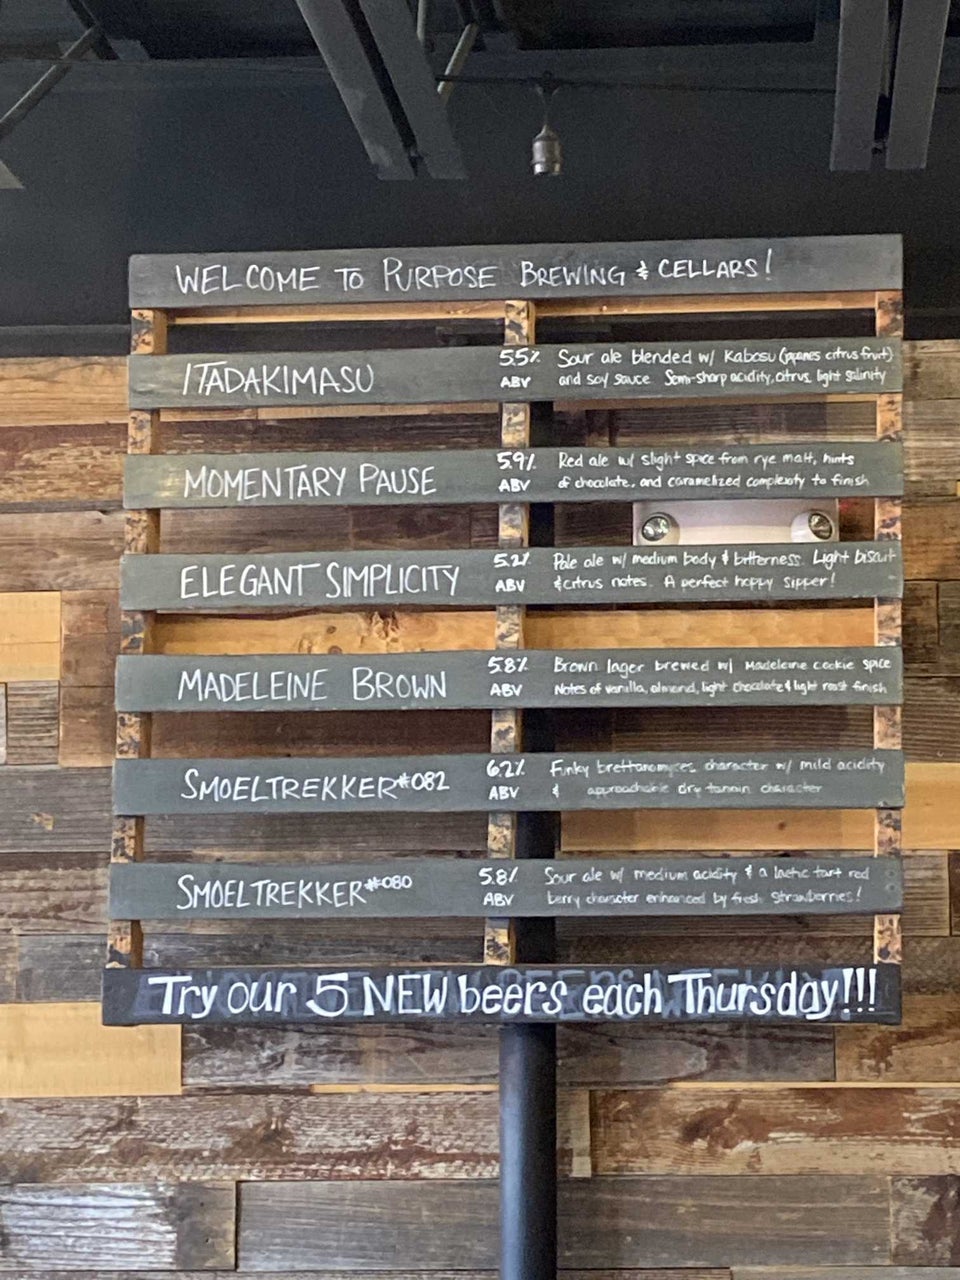 WELCOME TO PURPOSE BREWING & CELLARS!
ITADAKIMASU
5.5%
ABV
Sour ale blended w/ Kabosu (Japanes citrus fruit)
and soy sauce Semi-sharp acidity, citrus, light salinity
MOMENTARY PAUSE
5.9%
ABV
Red ale w/ slight spice from rye malt, hints
of chocolate, and caramelized complexity to finish
ELEGANT SIMPLICITY
5.2%
ABV
Pale ale w/ medium body & bitterness. Light biscuit
& citrus notes. A perfect hoppy sipper!
MADELEINE BROWN
5.8%
ABV
Brown lager brewed w/ Madeleine cookie spice
Notes of vanilla, almond, light chocolate & light roast finish
SMOELTREKKER #082
6.2%
ABV
Funky brettanomyces character w/ mild acidity
& approachable dry tannin character
SMOELTREKKER #080
5.8%
ABV
Sour ale w/ medium acidity & a lactic tart red
berry character enhanced by fresh strawberries!
Try our 5 NEW beers each Thursday!!!